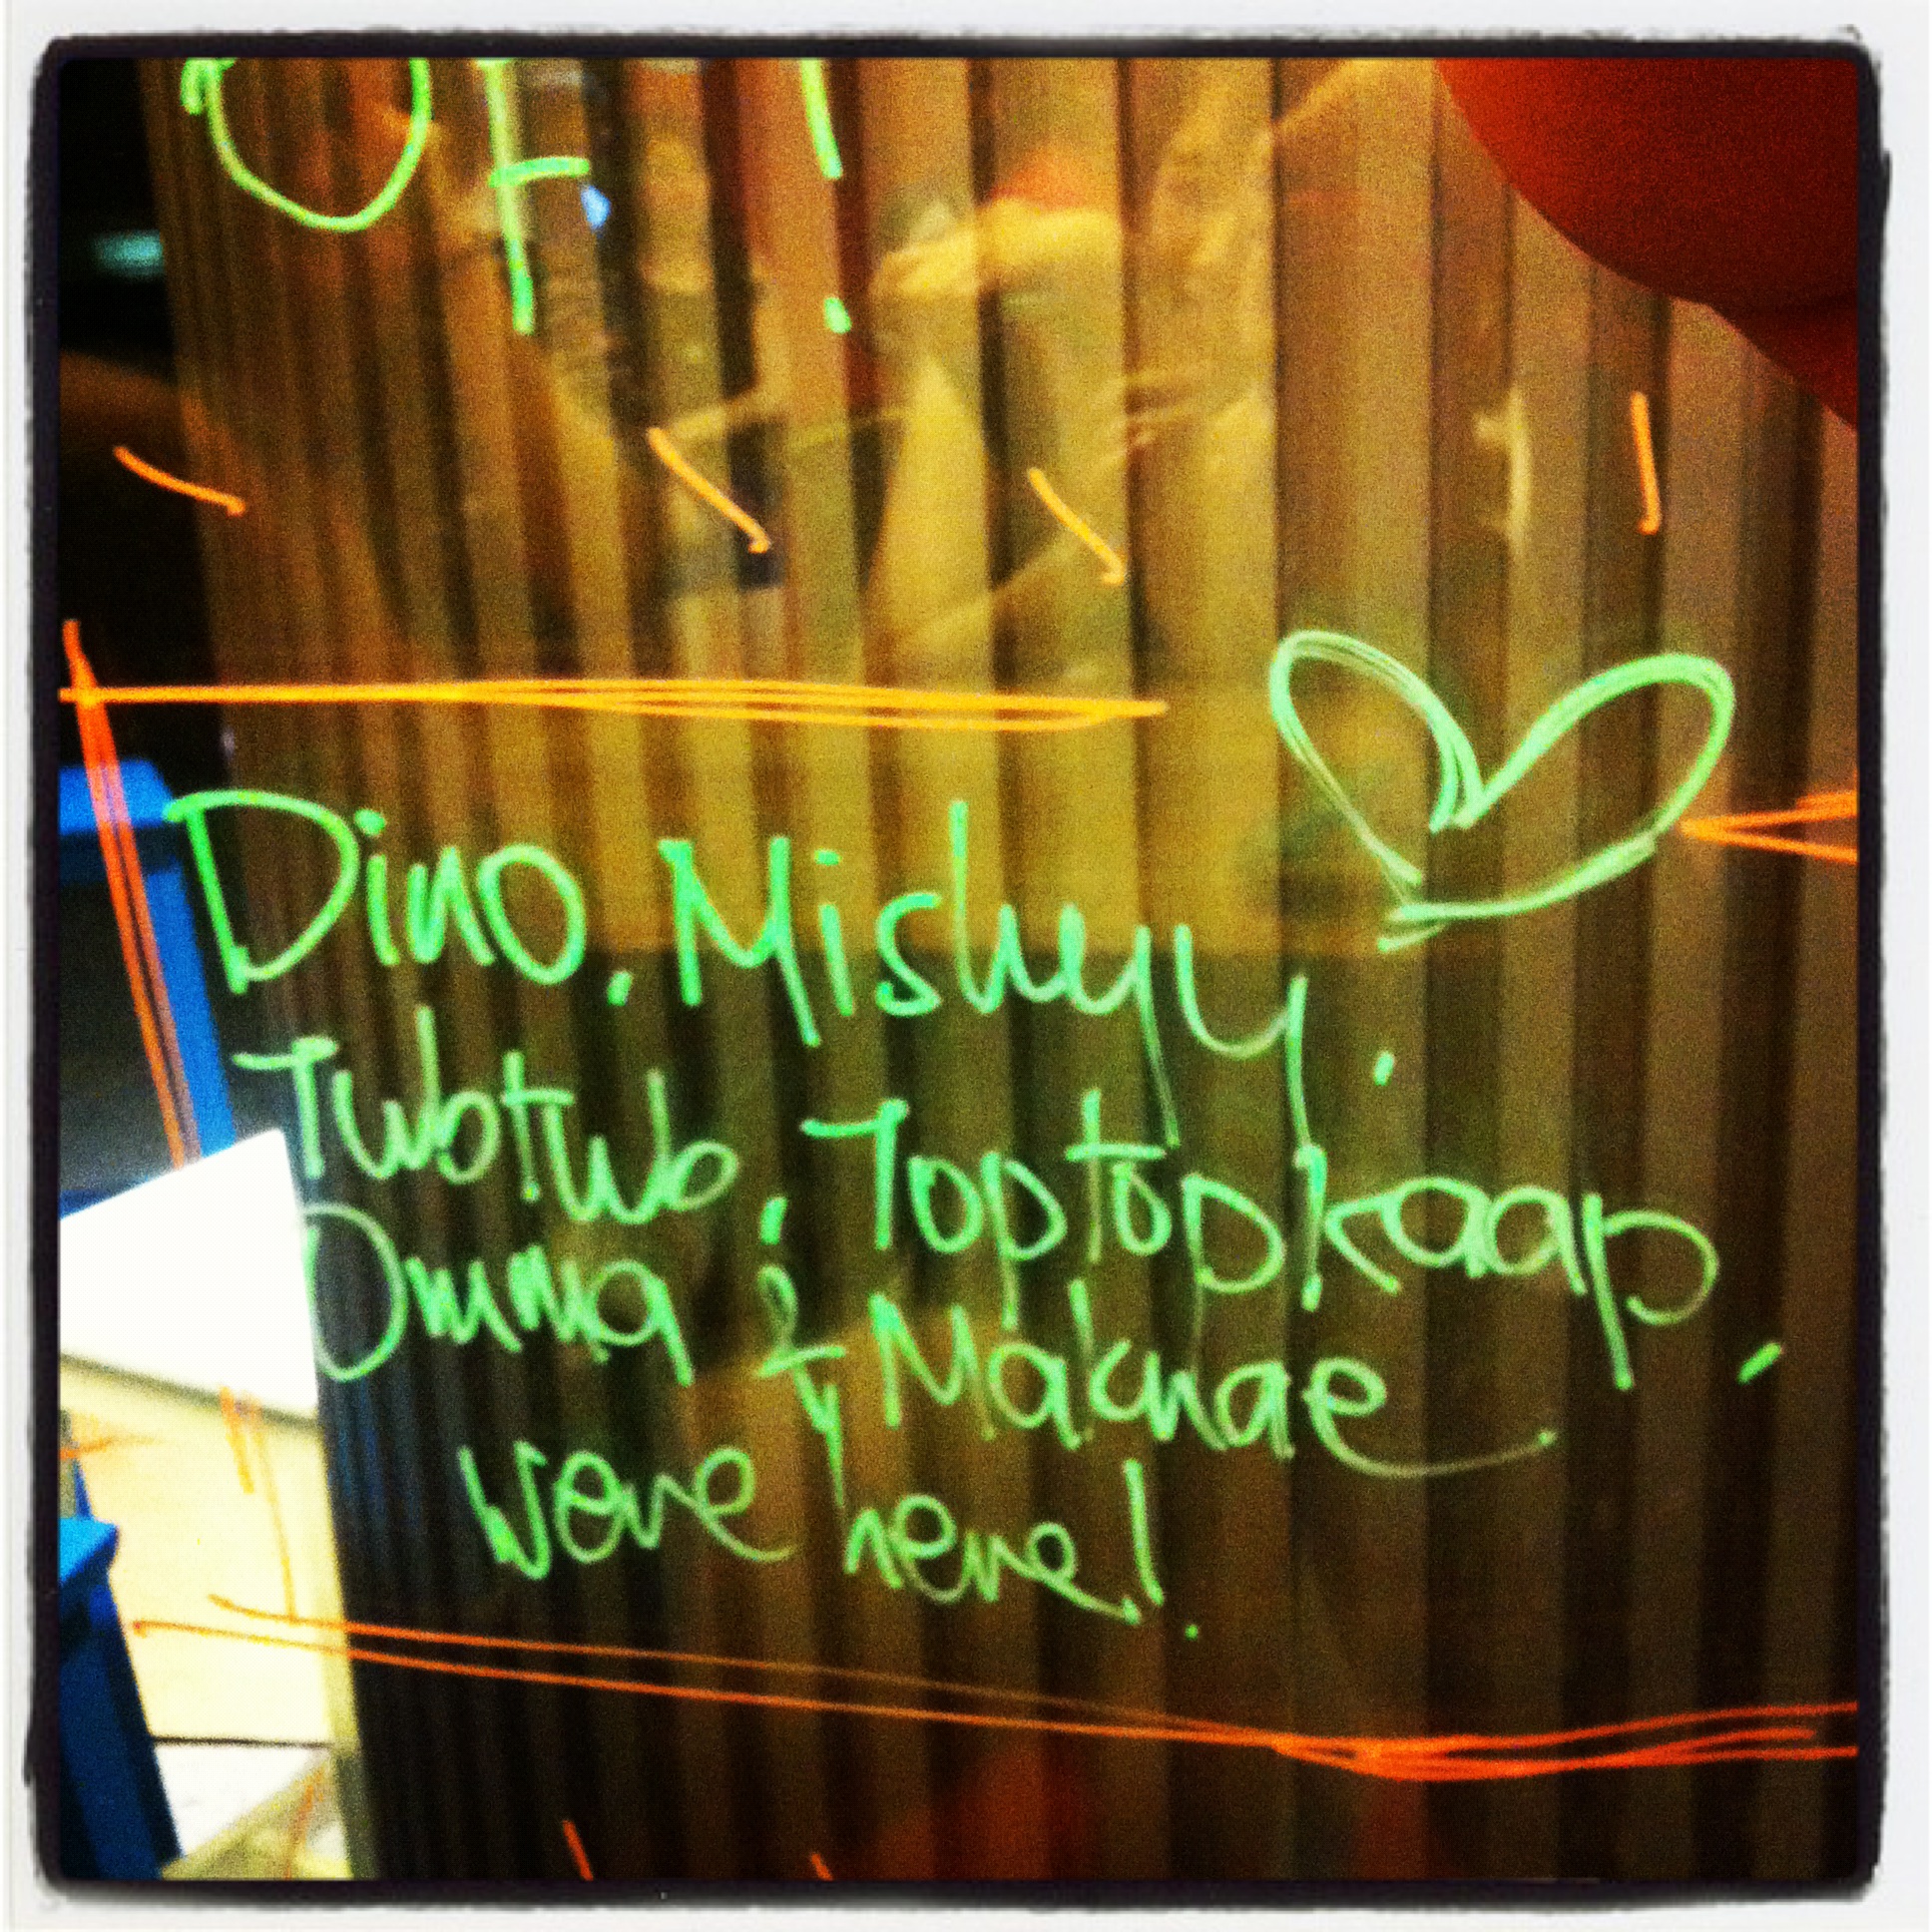 Dino, Mishyy,
Twotwo, Toptopkaap,
Omma & Maknae
were here!